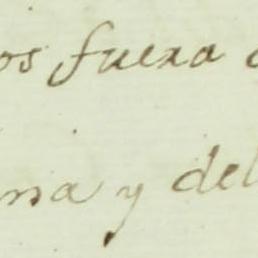 os fuera
na y del